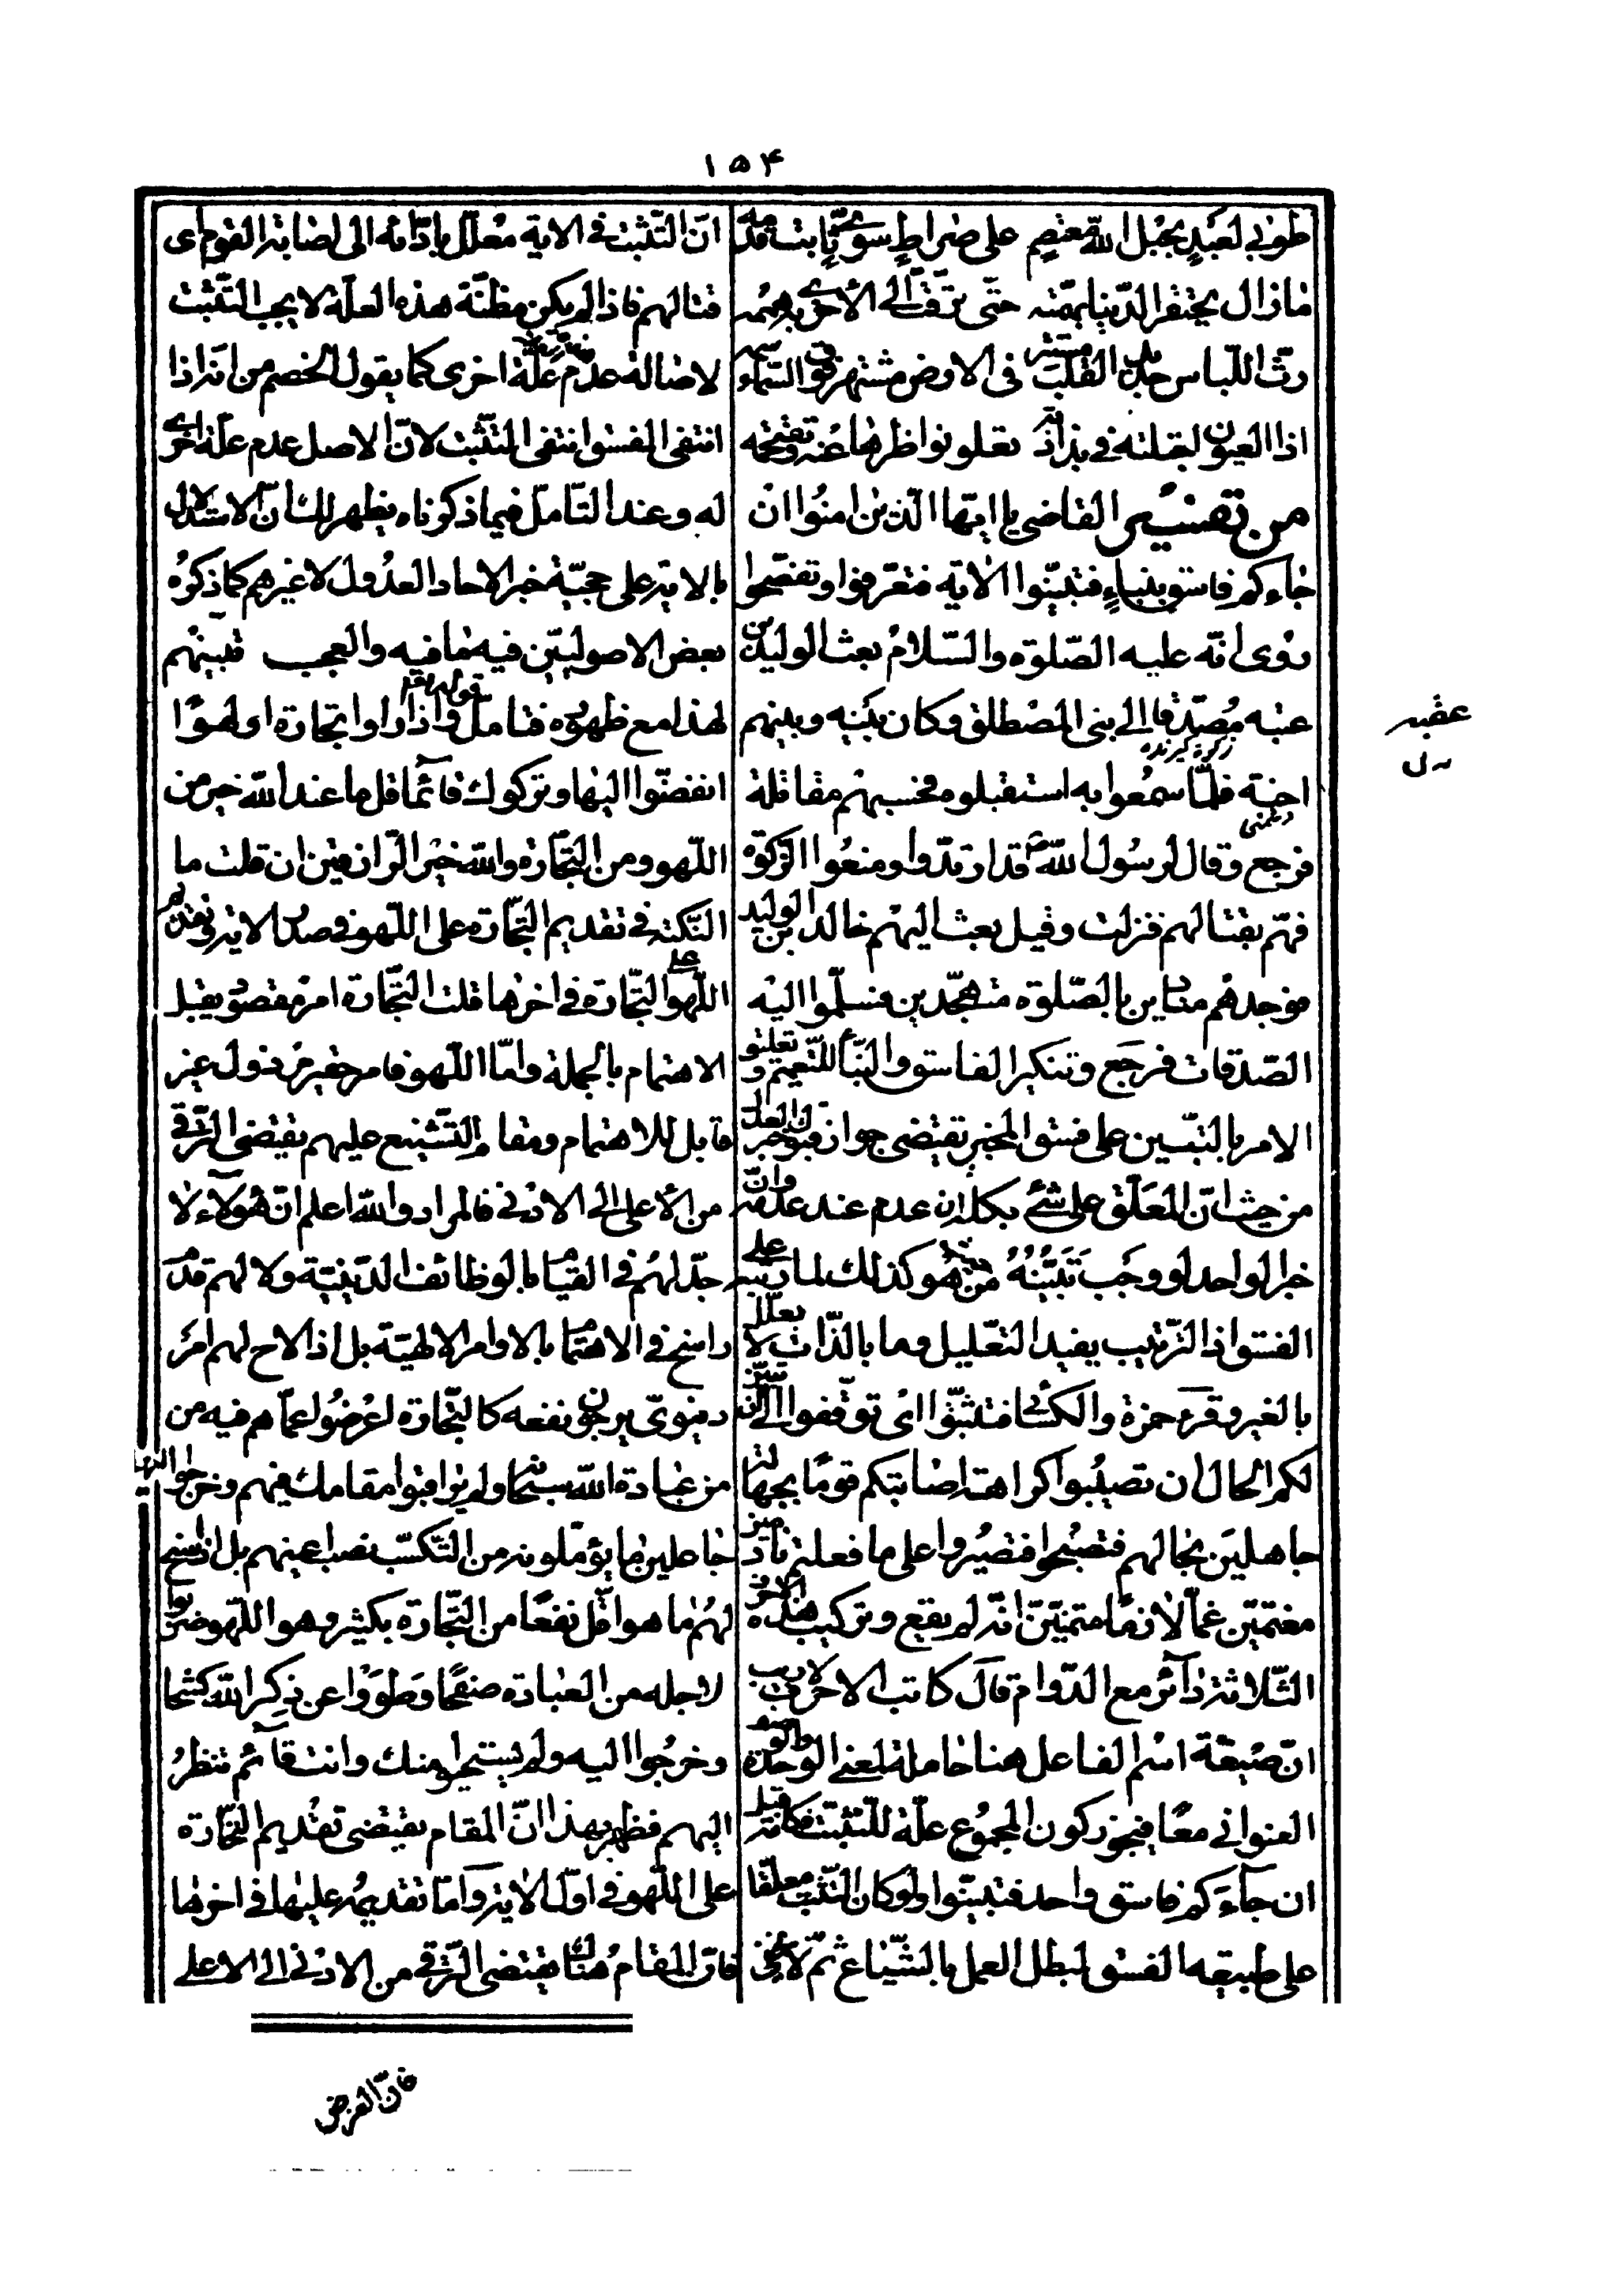 ١٥۴
طوبى لعبد بحبل الله معتصم على صراط سوي ثابت قدمه
ما زال يحتقر الدنيا بهمته حتى ترقت الى الأخرى به هممه
رث اللباس جديد القلب مستتر فى الارض مشتهر فوق السماء سمه
اذا العيون اجتلته في بذاذته تعلو نواظرها عنه وتقتحمه
من تفسير القاضى يا ايها الذين امنوا ان
جاءكم فاسق بنباء فتبينوا الاية فتعرفوا وتفحصوا
روى انه عليه الصلوة والسلام بعث الوليد بن
عتبه مصدقا الى بنى المصطلق وكان بينه وبينهم
زكوة گيرنده
احنة فلما سمعوا به استقبلوه فحسبهم مقاتلة
دشمنى
فرجع وقال لرسول الله ص قد ارتدوا ومنعوا الزكوة
فهم بقتالهم فنزلت وقيل بعث اليهم خالد بن الوليد
فوجدهم منادين بالصلوة متهجدين فسلموا اليه
الصدقات فرجع وتنكير الفاسق والنبأ للتعميم وتعليق
الامر بالتبين على فسق المخبر يقتضى جواز قبول خبر العدل
من حيث ان المعلق على شئ بكلمة ان عدم عند عدمه وان
خبر الواحد لو وجب تبينه من حيث هو كذلك لما رتبه على
الفسق اذ الترتيب يفيد التعليل وما بالذات لا يعلل
بالغير وقرء حمزة والكسائى فتثبتوا اى توقفوا الى ان يتبين
لكم الحال ان تصيبوا كراهة اصابتكم قوما بجهالة
جاهلين بحالهم فتصبحوا فتصيروا على ما فعلتم نادمين
مغتمين غما لازما متمنين انه لم يقع وتركيب هذه الاحرف
الثلاثة دائر مع الدوام قال كاتب الاحرف لا ريب
ان صيغة اسم الفاعل هنا حاملة لمعنى الوحدة والوصف
العنوانى معا فيجوز كون المجموع علة للتثبت فكانه قيل
ان جاءكم فاسق واحد فتبينوا ولو كان التثبت معلقا
على طبيعة الفسق لبطل العمل بالشياع ثم لا يخفى
ان التثبت في الاية معلل بادائه الى اصابة القوم اى
قتالهم فاذا لم يكن مظنة هذه العلة لا يجب التثبت
لاصالة عدم علة اخرى كما يقول الخصم من انه اذا
انتفى الفسق انتفى التثبت لان الاصل عدم علة اخرى
له وعند التامل فيما ذكرناه يظهر لك ان الاستدلال
بالاية على حجية خبر الاحاد العدول لا غيرهم كما ذكره
بعض الاصوليين فيه ما فيه والعجب تنبيههم
لهذا مع ظهوره فتامل قوله تعالى واذا راوا تجارة او لهوا
انفضوا اليها وتركوك قائما قل ما عند الله خير من
اللهو ومن التجارة والله خير الرازقين ان قلت ما
النكتة فى تقديم التجارة على اللهو في صدر الاية وتقديم
اللهو على التجارة في اخرها قلت التجارة امر مقصود يقبل
الاهتمام بالجملة واما اللهو فامر حقير مرذول غير
قابل للاهتمام ومقام التشنيع عليهم يقتضى الترقي
من الأعلى الى الادنى فالمراد والله اعلم ان هؤلاء لا
جد لهم فى القيام بالوظائف الدينية ولا لهم قدم
راسخ في الاهتمام بالاوامر الالهية بل اذا لاح لهم امر
دنيوي يرجون نفعه كالتجارة اعرضوا عما هم فيه من
من عبادة الله سبحانه ولم يراقبوا مقامك فيهم وخرجوا اليها
جاعلين ما يؤملونه من التكسب نصب اعينهم بل اذا سنح
لهم ما هو اقل نفعا من التجارة بكثير وهو اللهو ضربوا
لاجله من العبادة صفحا وطووا عن ذكر الله كشحا
وخرجوا اليه ولم يستحيوا منك وانت قائم تنظر
اليهم فظهر بهذا ان المقام يقتضى تقديم التجارة
على اللهو فى اول الاية واما تقديمه عليها في اخرها
فان المقام هناك يقتضى الترقي من الادنى الى الاعلى
عقبه
ل
فان الغرض